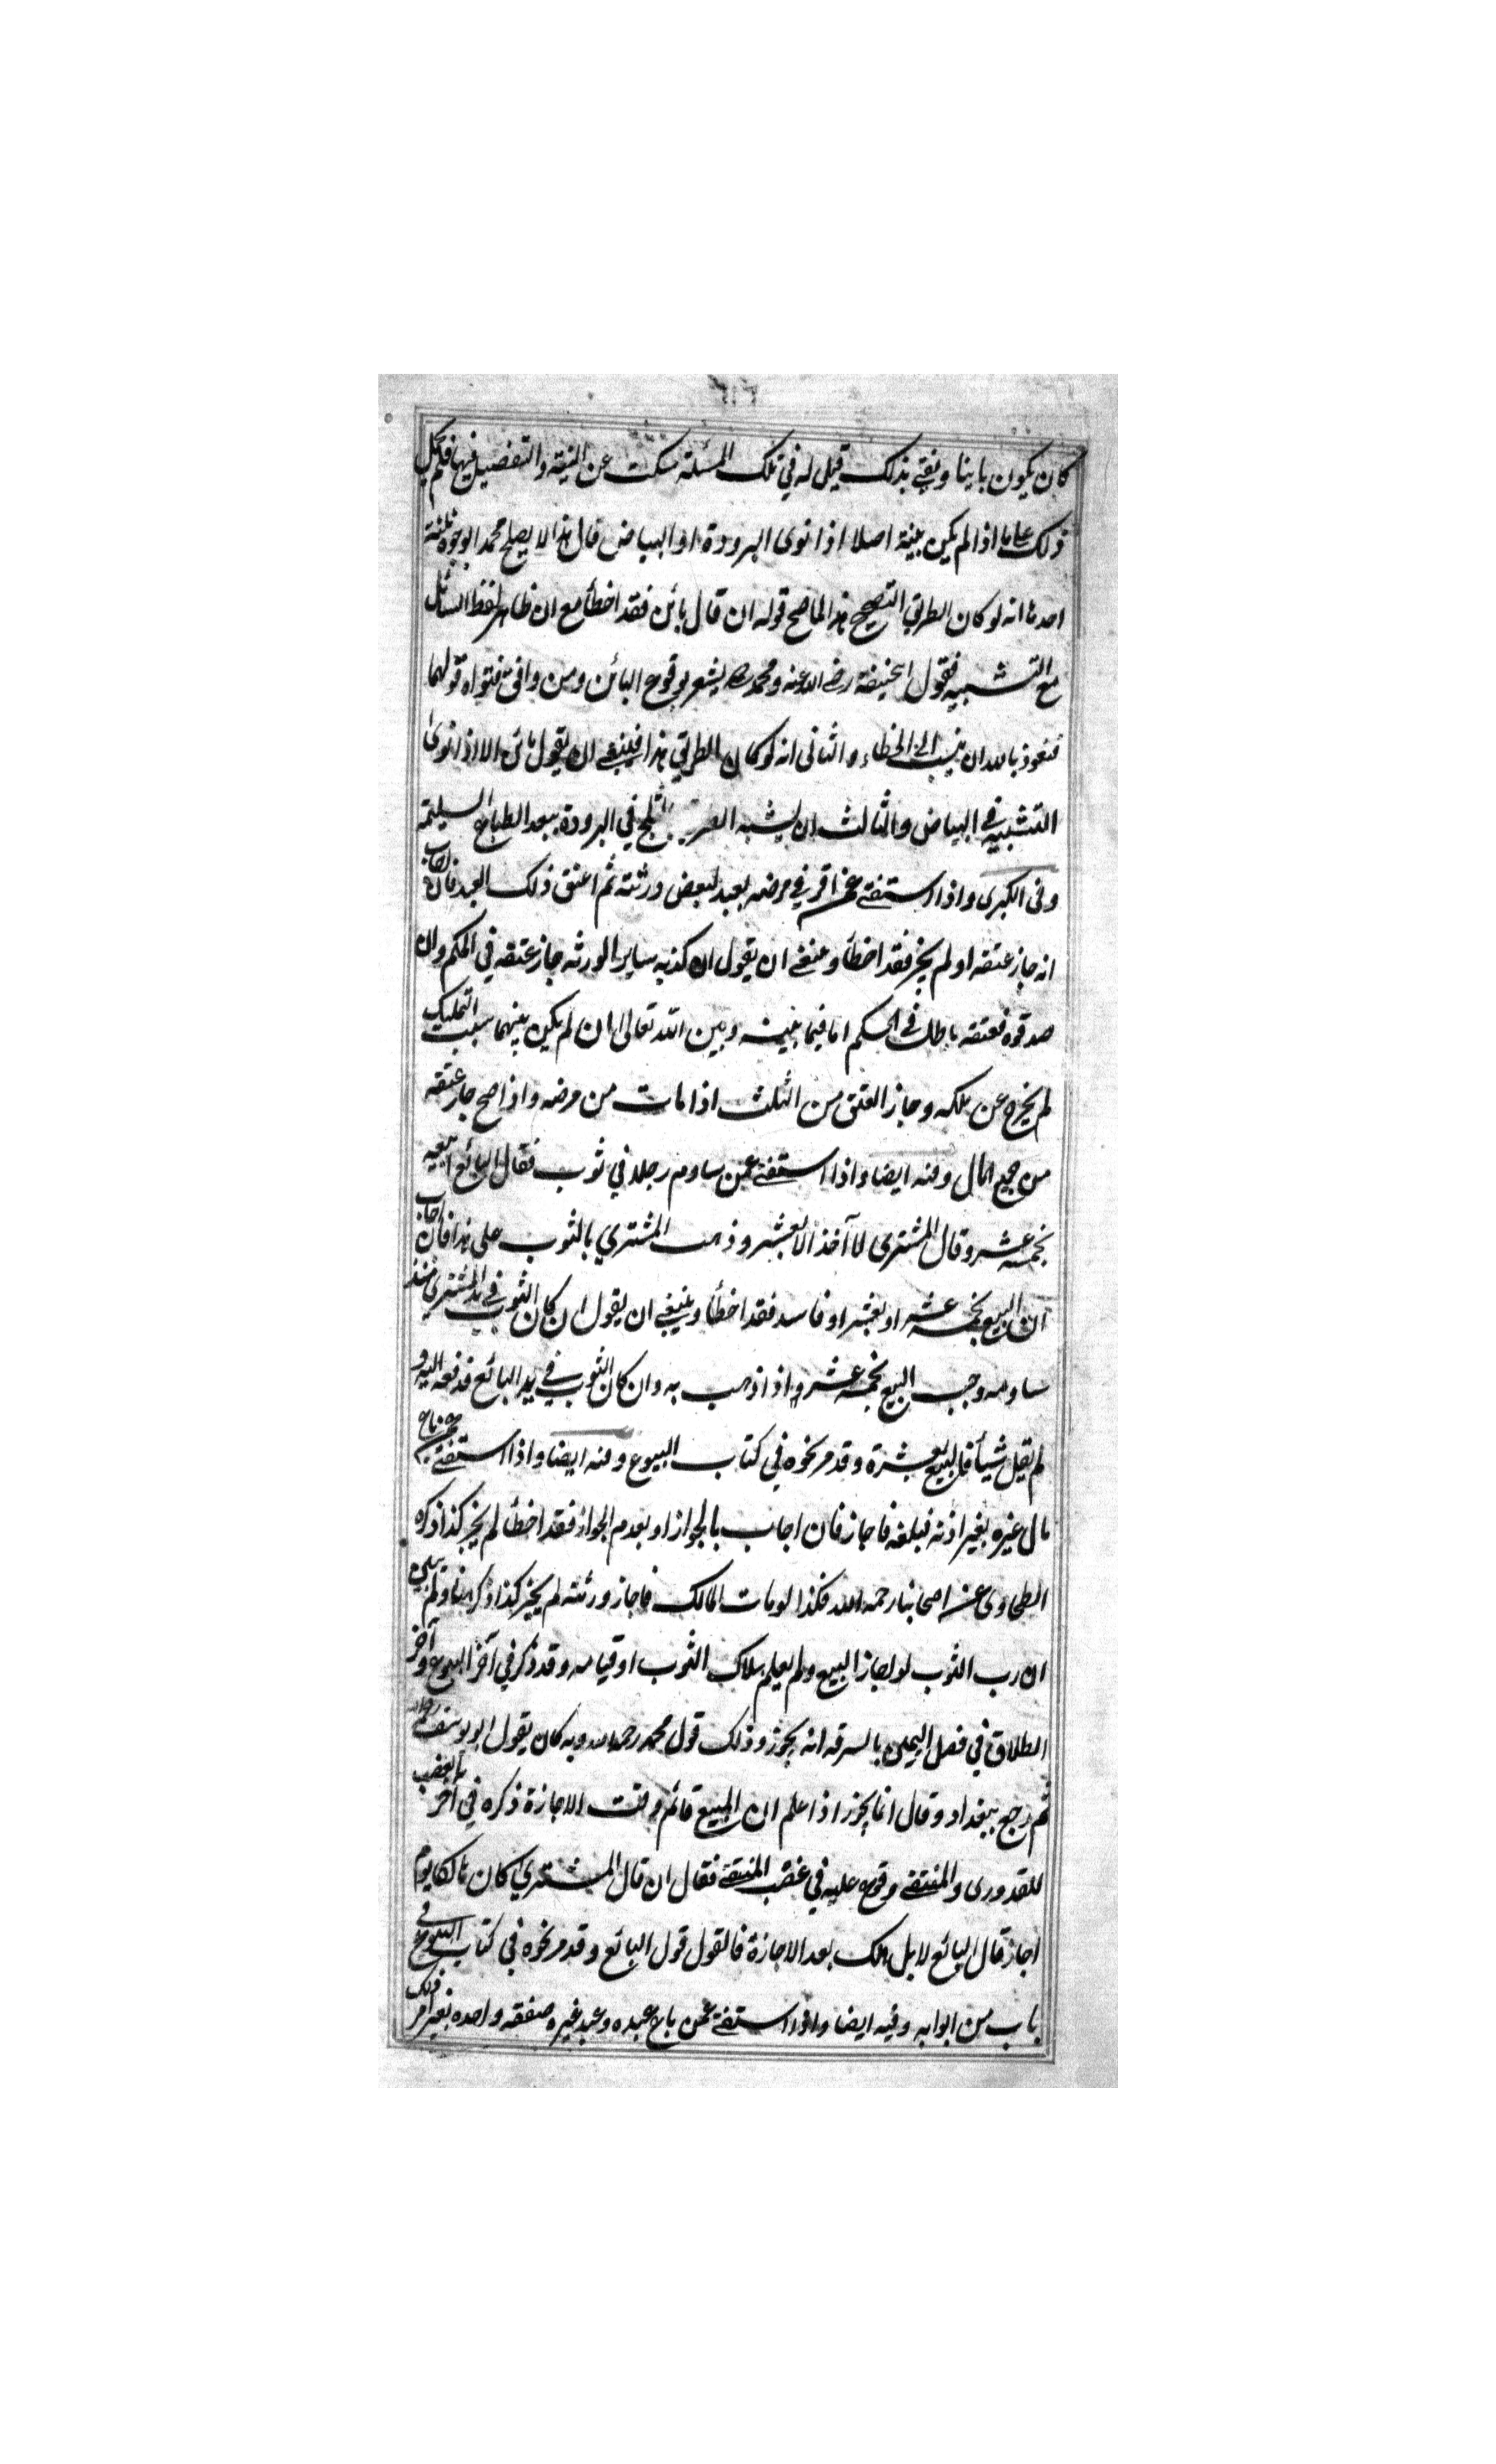 كان يكون باينا ويفتى بذلك قيل له في تلك المسئلة سكت عن النية والتفصيل فيها فحمل
ذلك على ما اذا لم يكن بنية اصلا اذا نوى البرودة او البياض قال هذا لا يصلح محمد الوجوه ثلثة
احدها انه لو كان الطريق الصحيح هذا لما صح قوله ان قال بائن فقد اخطأ مع ان ظاهر لفظ السائل
مع التشبيه فقول ابي حنيفة رضي الله عنه ومحمد رح يشعر بوقوع البائن ومن وافق فتواه قولهما
فنعوذ بالله ان ينسب الى الخطاء والثاني انه لو كان الطريق هذا فينبغي ان يقول بائن الا اذا نوى
التشبيه في البياض والثالث ان يشبه بالثلج في البرودة يبعد الطباع السليمة
وفي الكبرى واذا استفتى عمن اقر في مرضه بعبد لبعض ورثته ثم اعتق ذلك العبد فان اجاب
انه جاز عتقه او لم يجز فقد اخطأ وينبغي ان يقول ان كذبه ساير الورثه جاز عتقه في الحكم وان
صدقوه فعتقه باطل في الحكم اما فيما بينه وبين الله تعالى ان لم يكن بينهما سبب التمليك
لم يخرج عن ملكه وجاز العتق من الثلث اذا مات من مرضه واذا صح جاز عتقه
من جميع المال وفيه ايضا واذا استفتى عمن ساوم رجلا في ثوب فقال البائع ابيعه
بخمسة عشر وقال المشتري لا آخذ الا بعشر وذهب المشتري بالثوب على هذا فان اجاب
ان البيع بخمسة عشر او بعشر او فاسد فقد اخطأ وينبغي ان يقول ان كان الثوب في يد المشتري منذ
ساومه وجب البيع بخمسة عشر اذا ذهب به وان كان الثوب في يد البائع فدفعه اليه و
لم يقل شيأ فالبيع بعشرة وقد مر نحوه في كتاب البيوع وفيه ايضا واذا استفتى عمن باع
مال غيره بغير اذنه فبلغه فاجاز فان اجاب بالجواز او بعدم الجواز فقد اخطأ لم يجز كذا ذكره
الطحاوي عن اصحابنا رحمه الله فكذا لو مات المالك فاجاز ورثته لم يجز كذا ذكر هنا ولم يبين
ان رب الثوب لو اجاز البيع ولم يعلم هلاك الثوب او قيامه وقد ذكر في آخر البيوع وآخر
الطلاق في فصل اليمين بالسرقه انه يجوز وذلك قول محمد رحمه الله وبه كان يقول ابو يوسف رحمه الله
ثم رجع ببغداد وقال انما يجوز اذا علم ان المبيع قائم وقت الاجازة ذكره في آخر الغصب
للقدوري والمنتقى وفرع عليه في غصب المنتقى فقال ان قال المشتري كان هالكا يوم
اجاز قال البائع لا بل هلك بعد الاجازة فالقول قول البائع وقد مر نحوه في كتاب البيوع في
باب من ابوابه وفيه ايضا واذا استفتى عمن باع عبده وعبد غيره صفقه واحده بغير امر ذلك